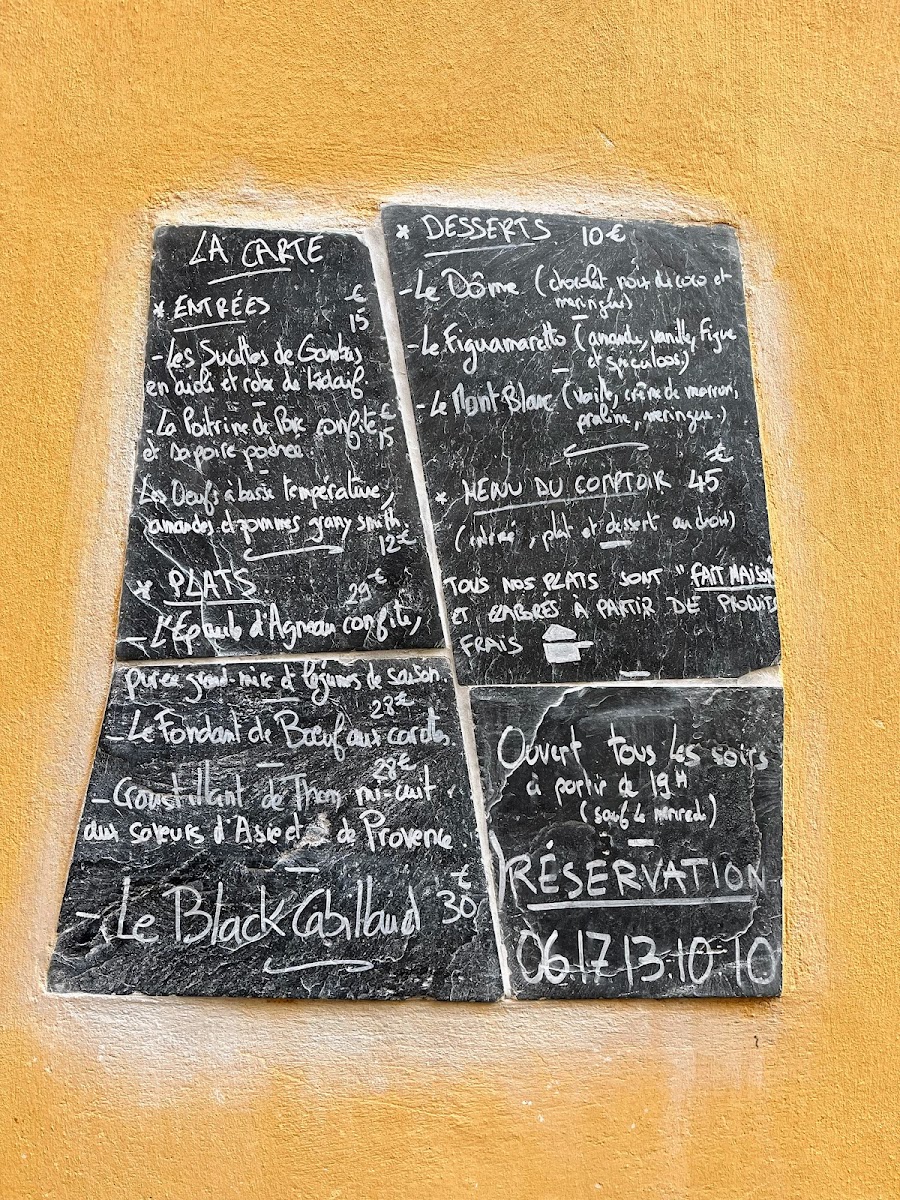 LA CARTE
* ENTRÉES
€
15
- Les Sucettes de Gambas
en aioli et robe de kadaif.
- La Poitrine de Porc confite, €
15
et sa poire pochée.
Les Oeufs à basse température,
amandes et pommes granny smith.
12€
* PLATS
29€
- L'Epaule d'Agneau confite,
purée grand-mère et légumes de saison.
28€
- Le Fondant de Bœuf aux carottes.
28€
- Croustillant de Thon mi-cuit
aux saveurs d'Asie et de Provence.
€
- Le Black Cabillaud 30
* DESSERTS 10€
- Le Dôme (chocolat, noix de coco et
meringue)
- Le Figuamaretto (amande, vanille, figue
et spéculoos)
- Le Mont Blanc (vanille, crème de marron,
praline, meringue.)
€
* MENU DU COMPTOIR 45
(entrée, plat et dessert au choix)
TOUS NOS PLATS SONT "FAIT MAISON
ET ÉLABORÉS À PARTIR DE PRODUITS
FRAIS
Ouvert tous les soirs
à partir de 19H
(sauf le mercredi)
RÉSERVATION
06.17.13.10.10